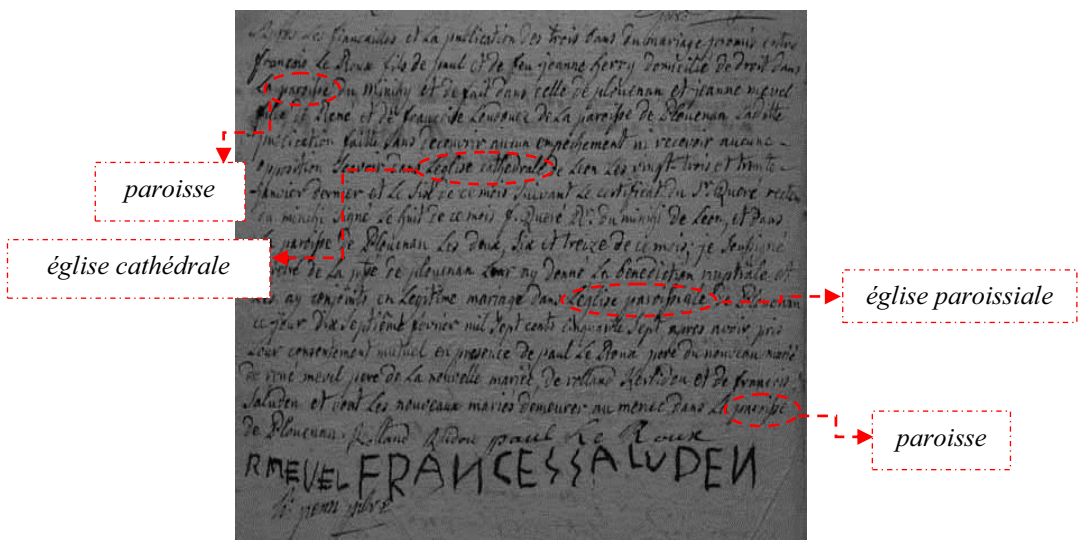 Après les fiançailles et la publication des trois bans du mariage promis entre
françois Le Roux fils de paul et de feu jeanne herry domicilié de droit dans
La paroisse du minihy et de fait dans celle de plouenan et jeanne mevel
fille de Rene et de françoise de La paroisse de Plouenan La dite
publication faitte sans decouvrir aucun empechement ni recevoir aucune
opposition Sçavoir dans L'eglise cathédrale de Leon Les vingt trois et trente
Janvier dernier et Le Six de ce mois Suivant Le certificat du Sr. Queré recteur
du minihy Signé Le huit de ce mois f. Queré Rr. du minihi de Leon, et dans
La paroisse de Plouenan Les deux, Six et treize de ce mois; je Soussigné
de La ptre de plouenan Leur ay donné La bénédiction nuptiale et
Les ay conjoints en Légitime mariage dans L'eglise paroissiale de Plouenan
ce jour dix Septième fevrier mil Sept cents cinquante Sept apres avoir pris
Leur consentement mutuel en presence de paul Le Roux pere du nouveau marié
de rené mevel pere de La nouvelle mariée, de rolland Kerlidou et de françois
Saluden et vont Les nouveaux mariés demeurer au menec dans La paroisse
de Plouenan. Rolland paul Le Roux
RMEVEL FRANCESSALUDEN
paroisse
église cathédrale
église paroissiale
paroisse